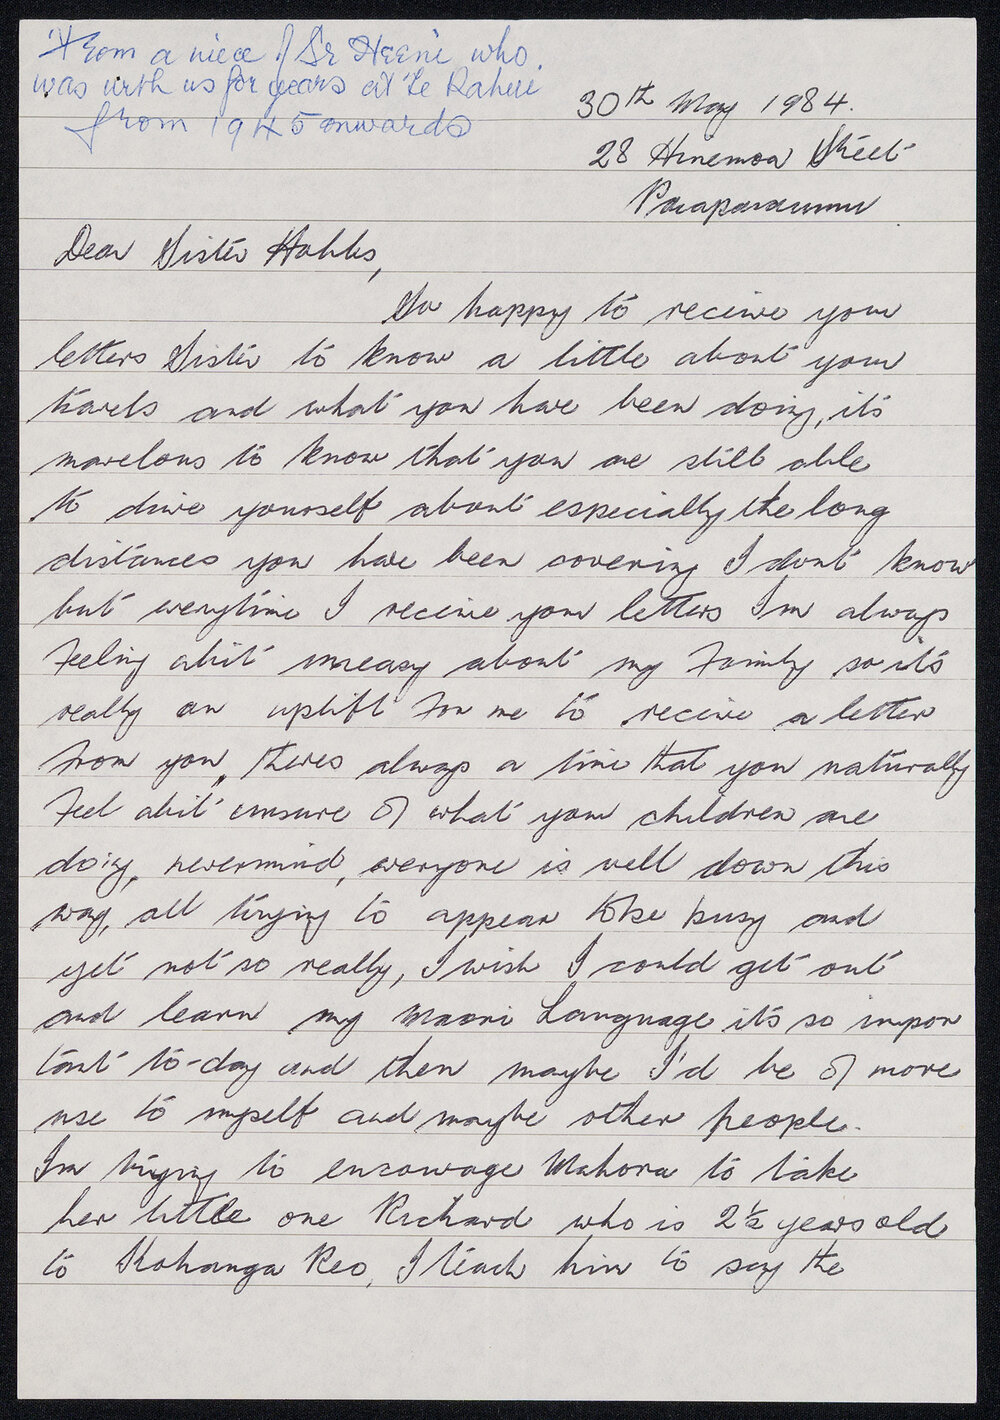 From a niece of Sr Heeni who
was with us for years at Te Rahui
from 1945 onwards
30th May 1984.
28 Hinemoa Street
Paraparaumu
Dear Sister Hobbs,
So happy to receive your
letters Sister to know a little about your
travels and what you have been doing, its
marvelous to know that you are still able
to drive yourself about especially the long
distances you have been covering I dont know
but everytime I receive your letters Im always
feeling abit uneasy about my family so it's
really an uplift for me to receive a letter
from you, theres always a time that you naturally
feel abit unsure of what your children are
doing, nevermind, everyone is well down this
way, all trying to appear to be busy and
yet not so really, I wish I could get out
and learn my Maori Language it's so impor
tant to-day and then maybe I'd be of more
use to myself and maybe other people.
Im trying to encourage Mahora to take
her little one Richard who is 2½ years old
to Kohanga Reo, I teach him to say the